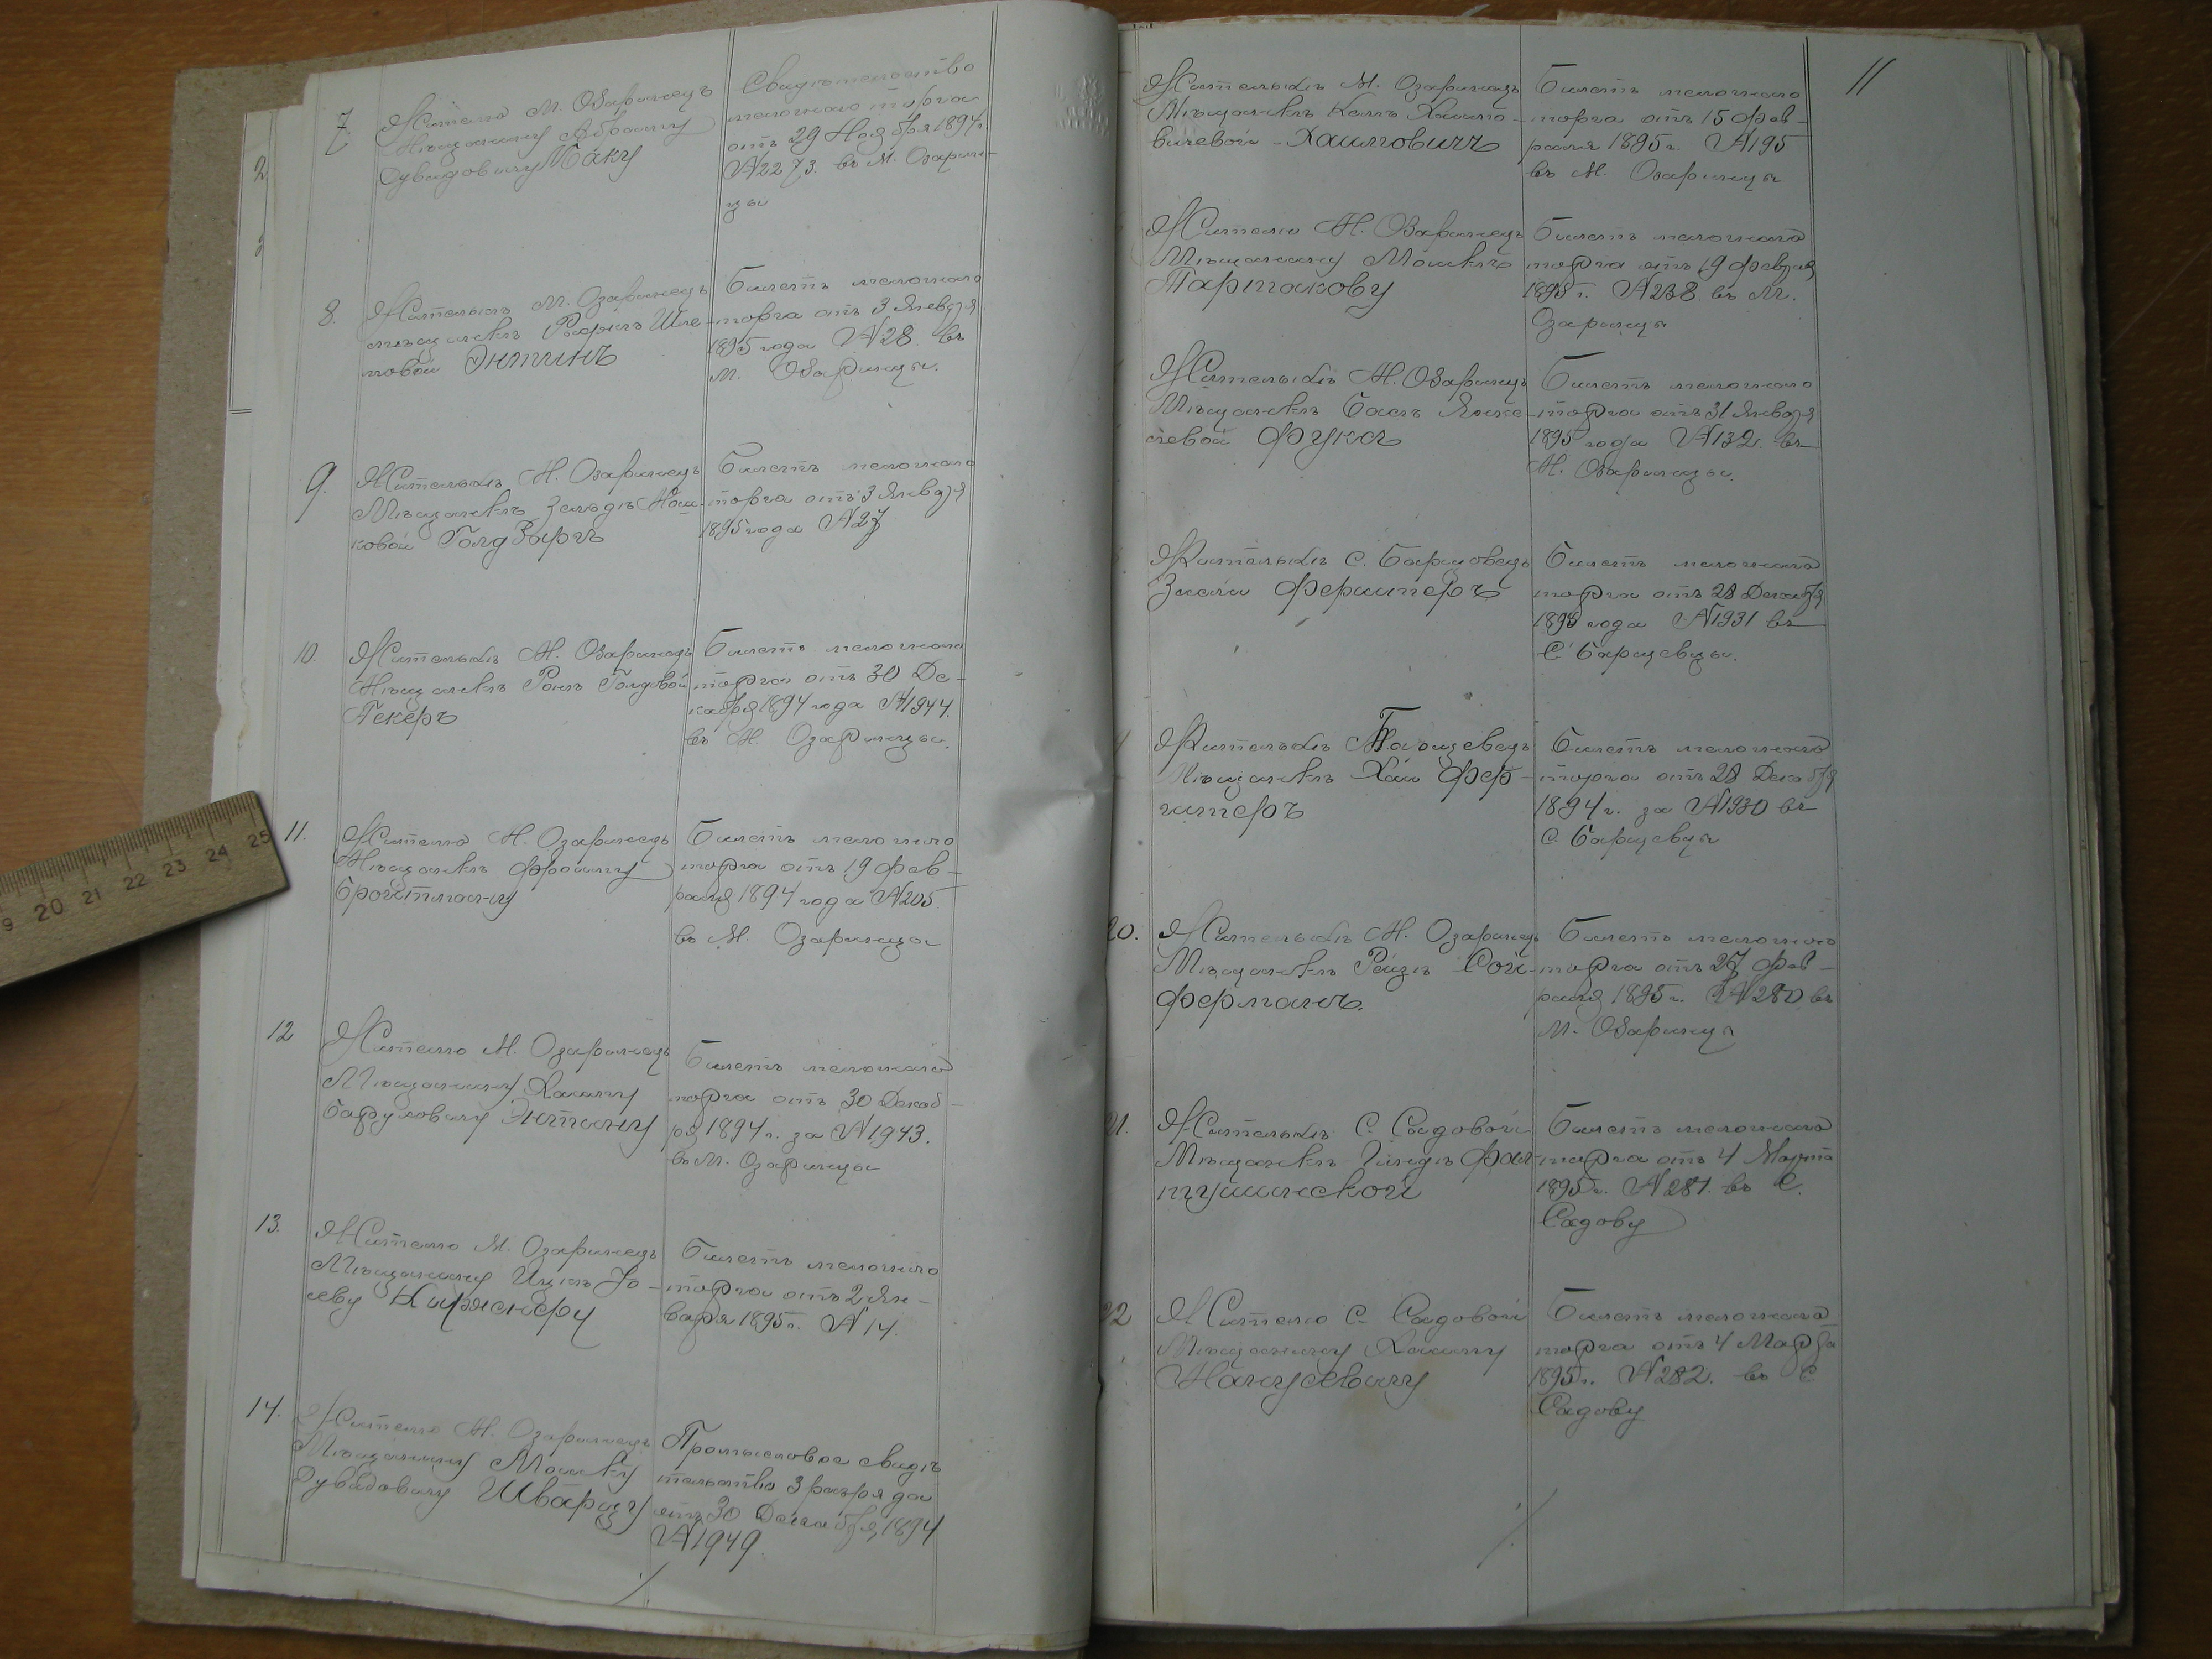 7. Жителю М. Озаринецъ
Мѣщанину Абраму
Дувидовичу Маку
Свидѣтельство
мелочного торга
отъ 29 Ноября 1894 г.
№ 2273. въ М. Озарин-
цы
8. Жителькѣ М. Озаринецъ
мѣщанкѣ Рифкѣ Шле-
мовой Энтинъ
Билетъ мелочного
торга отъ 3 Января
1895 года № 28. въ
М. Озаринцы.
9. Жителькѣ М. Озаринецъ
Мѣщанкѣ Зельдѣ Мош-
ковой Голдзаргъ
Билетъ мелочного
торга отъ 3 Января
1895 года № 27
10. Жителькѣ М. Озаринецъ
Мѣщанкѣ
Пекеръ
Билетъ мелочного
торга отъ 30 Де-
кабря 1894 года № 1944.
въ М. Озаринцы.
11. Жителю М. Озаринецъ
Мѣщанкѣ Фроиму
Бройтману
Билетъ мелочного
торга отъ 19 Фев-
раля 1894 года № 205.
въ М. Озаринцы
12 Жителю М. Озаринецъ
Мѣщанину Хаиму
Баруховичу Энтину
Билетъ мелочного
торга отъ 30 Декаб-
ря 1894 г. за № 1943.
въ М. Озаринцы
13. Жителю М. Озаринецъ
Мѣщанину Ицкѣ Іо-
севу Киржнеру
Билетъ мелочного
торга отъ 2 Ян-
варя 1895 г. № 14.
14. Жителю М. Озаринецъ
Мѣщанину Мошку
Дувидовичу Шварцу
Промысловое свидѣ
тельство 3 разряда
отъ 30 Декабря 1894
№ 1949.
11
Жителькѣ М. Озаринецъ
Мѣщанкѣ Хаимо-
вичевой - Хаимовичъ
Билетъ мелочного
торга отъ 15 Фев-
раля 1895 г. № 195
въ М. Озаринцы
Жителю М. Озаринецъ
Мѣщанину Мошкѣ
Пармакову
Билетъ мелочного
торга отъ 19 Февраля
1895 г. № 238. въ М.
Озаринцы
Жителькѣ М. Озаринецъ
Мѣщанкѣ Басѣ Янке-
левой Фуксъ
Билетъ мелочного
торга отъ 31 Января
1895 года № 132. въ
М. Озаринцы.
Жителькѣ С. Барщовецъ
Ферштеръ
Билетъ мелочного
торга отъ 28 Декабря
1894 года № 1931 въ
С. Барщевцы.
Жителькѣ Барщевецъ
Мѣщанкѣ Хаи Фер-
штеръ
Билетъ мелочного
торга отъ 28 Декабря
1894 г. за № 1930 въ
С. Барщевцы
20. Жителькѣ М. Озаринецъ
Мѣщанкѣ Рейзѣ Сой-
ферманъ.
Билетъ мелочного
торга отъ 27 Фев-
раля 1895 г. № 280 въ
М. Озаринцы
21. Жителькѣ С. Садовой
Мѣщанкѣ Гиндѣ Фал-
Билетъ мелочного
торга отъ 4 Марта
1895 г. № 281. въ С.
Садову
22 Жителю С. Садовой
Мѣщанину Хаиму
Билетъ мелочного
торга отъ 4 Марта
1895 г. № 282. въ С
Садову